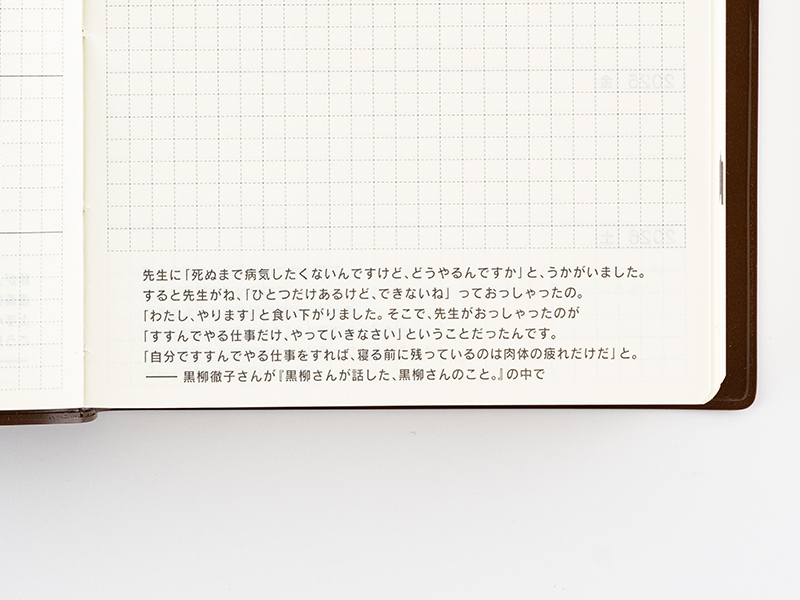 先生に「死ぬまで病気したくないんですけど、どうやるんですか」と、うかがいました。
すると先生がね、「ひとつだけあるけど、できないね」 っておっしゃったの。
「わたし、やります」と食い下がりました。そこで、先生がおっしゃったのが
「すすんでやる仕事だけ、やっていきなさい」ということだったんです。
「自分ですすんでやる仕事をすれば、寝る前に残っているのは肉体の疲れだけだ」と。
―― 黒柳徹子さんが『黒柳さんが話した、黒柳さんのこと。』の中で